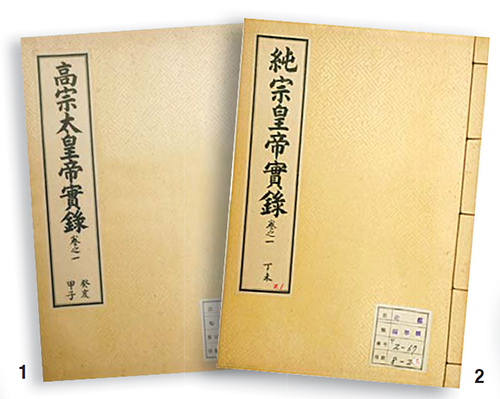 高宗太皇帝實錄 卷之一
癸亥
甲子
純宗皇帝實錄 卷之一
丁未
2-67
8-2
1
2